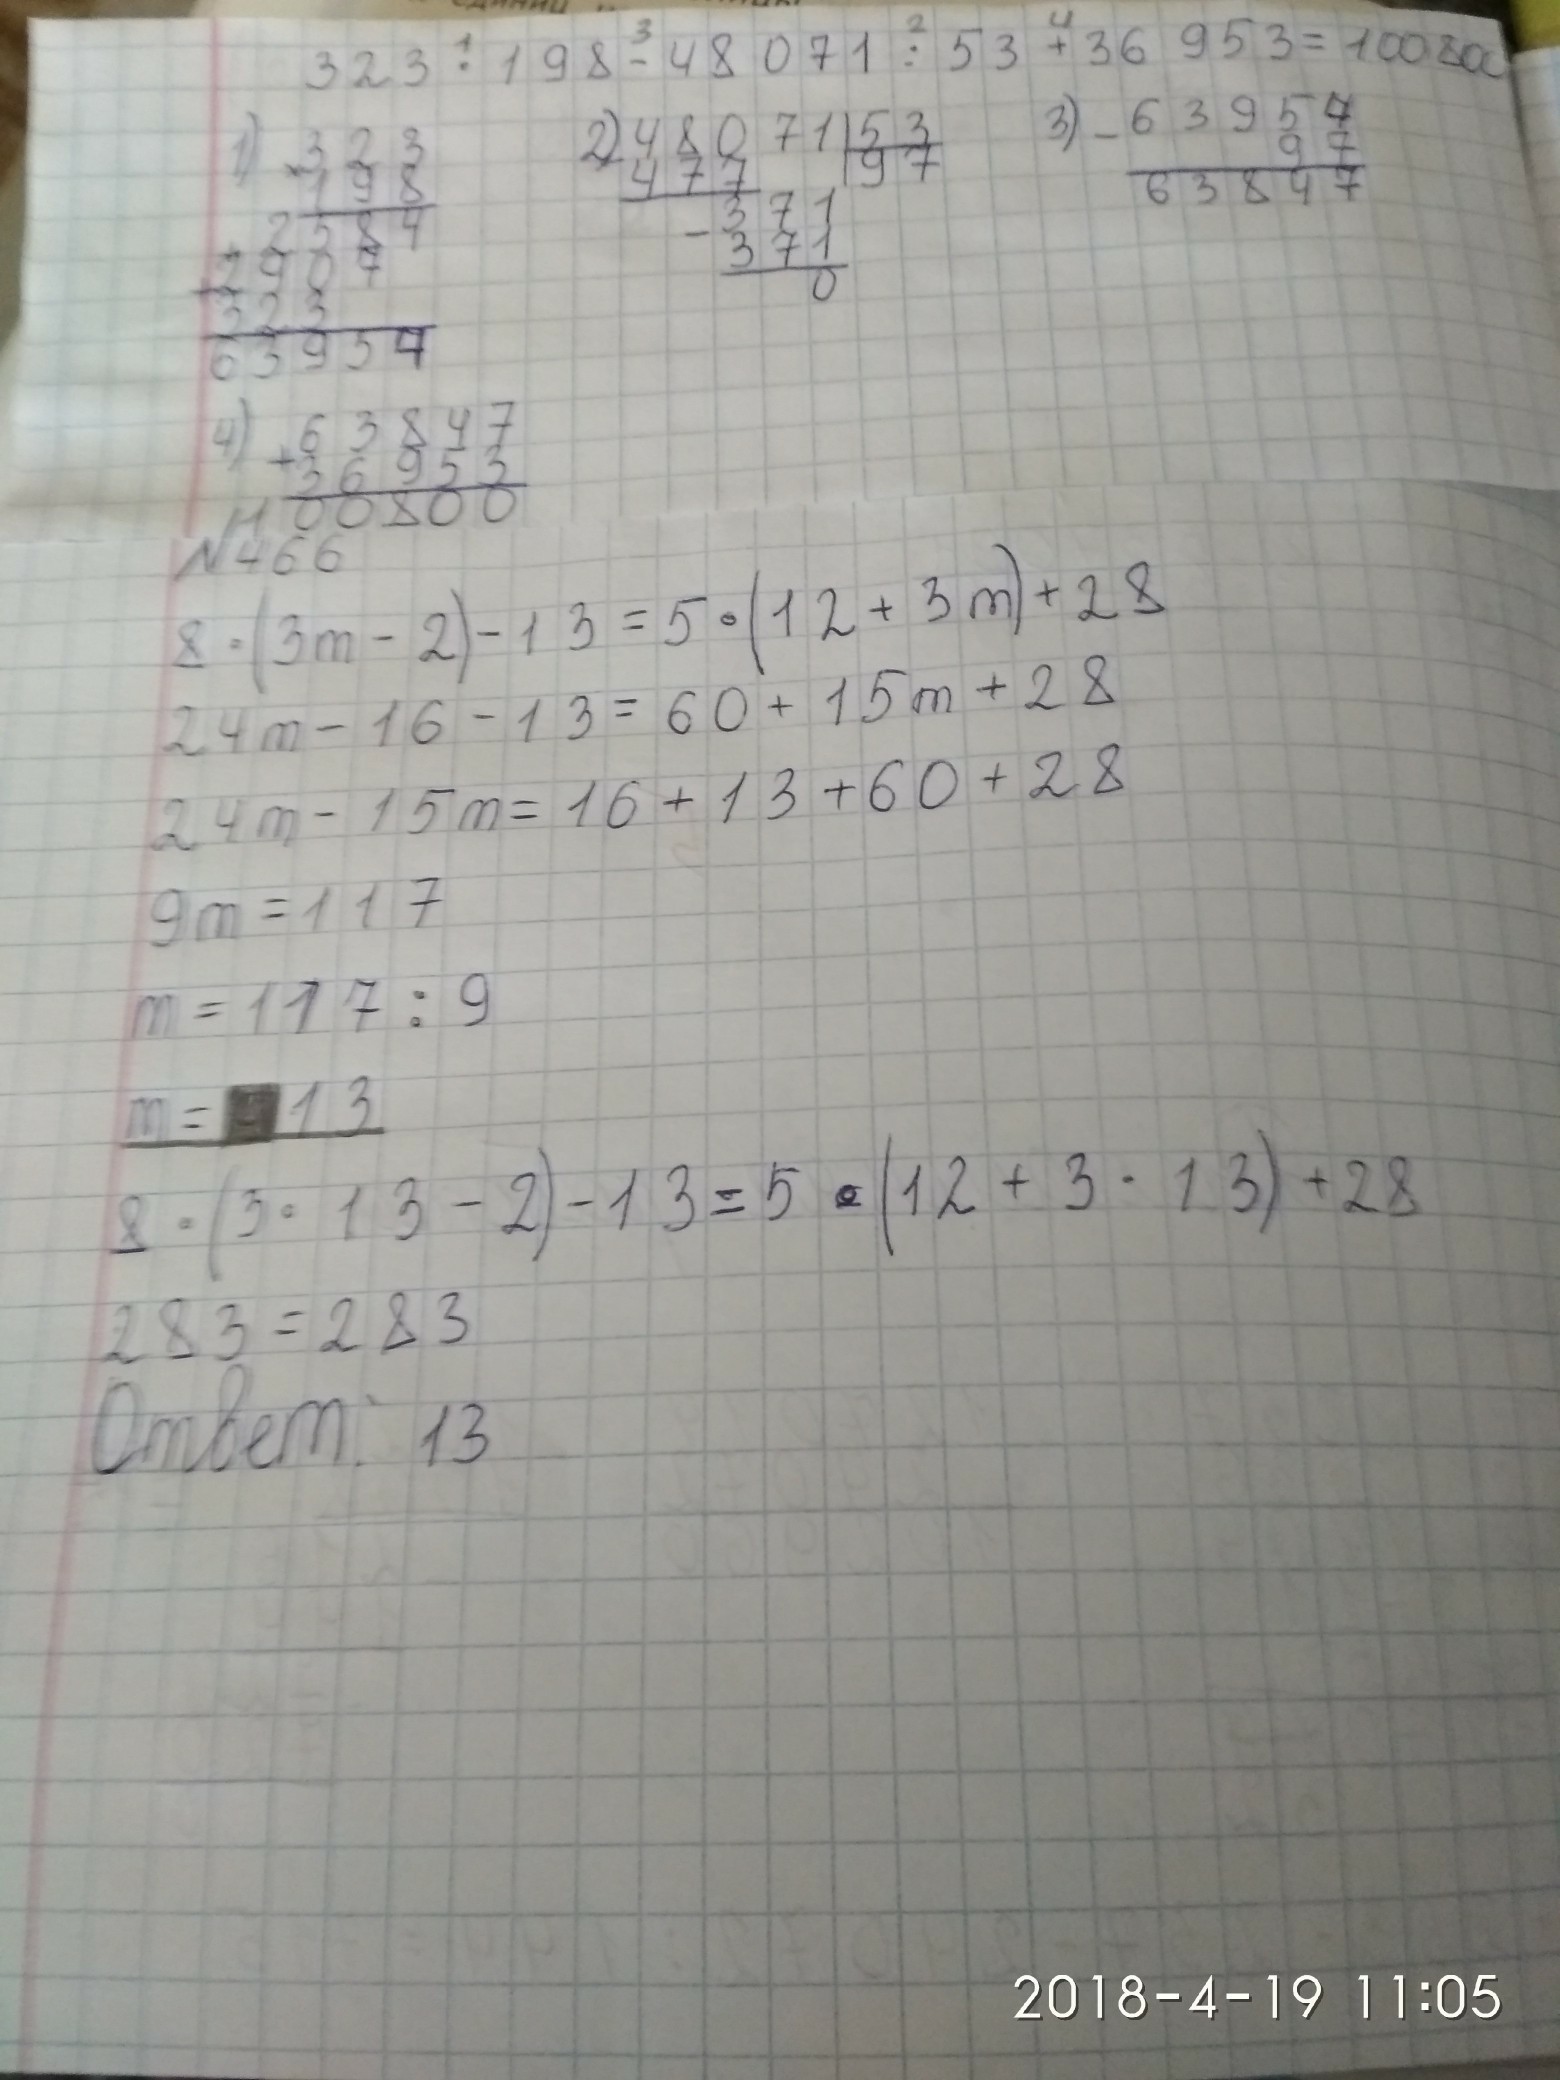 323 · 198 - 48 071 : 53 + 36 953 = 100800
1) 323
× 198
2584
+ 2907
323
63954
2) 48071 | 53
477 | 97
- 371
371
0
3) - 63954
97
63847
4) 63847
+ 36953
100800
№466
8 · (3m - 2) - 13 = 5 · (12 + 3m) + 28
24m - 16 - 13 = 60 + 15m + 28
24m - 15m = 16 + 13 + 60 + 28
9m = 117
m = 117 : 9
m = 13
8 · (3 · 13 - 2) - 13 = 5 · (12 + 3 · 13) + 28
283 = 283
Ответ: 13
2018-4-19 11:05